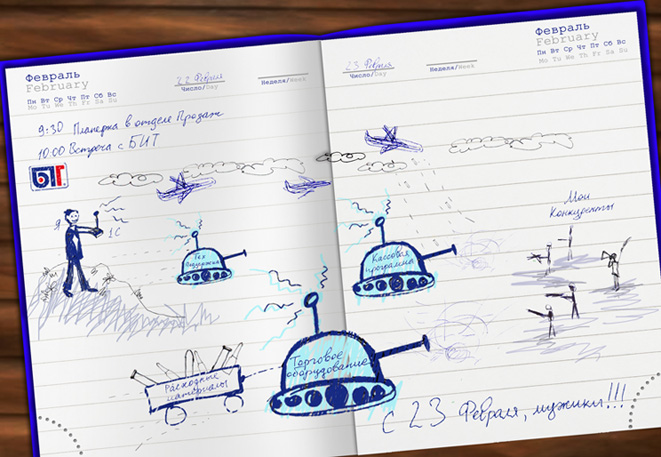 Февраль
February
Пн Вт Ср Чт Пт Сб Вс
Mo Tu We Th Fr Sa Su
22 Февраля
Число/Day
Неделя/Week
9:30 Планерка в отделе Продаж
10:00 Встреча с БИТ
БИТ
Я
1С
Тех
Поддержка
Расходные
материалы
Торговое
оборудование
Февраль
February
Пн Вт Ср Чт Пт Сб Вс
Mo Tu We Th Fr Sa Su
23 Февраля
Число/Day
Неделя/Week
Мои
Конкуренты
Кассовая
программа
С 23 Февраля, мужики!!!